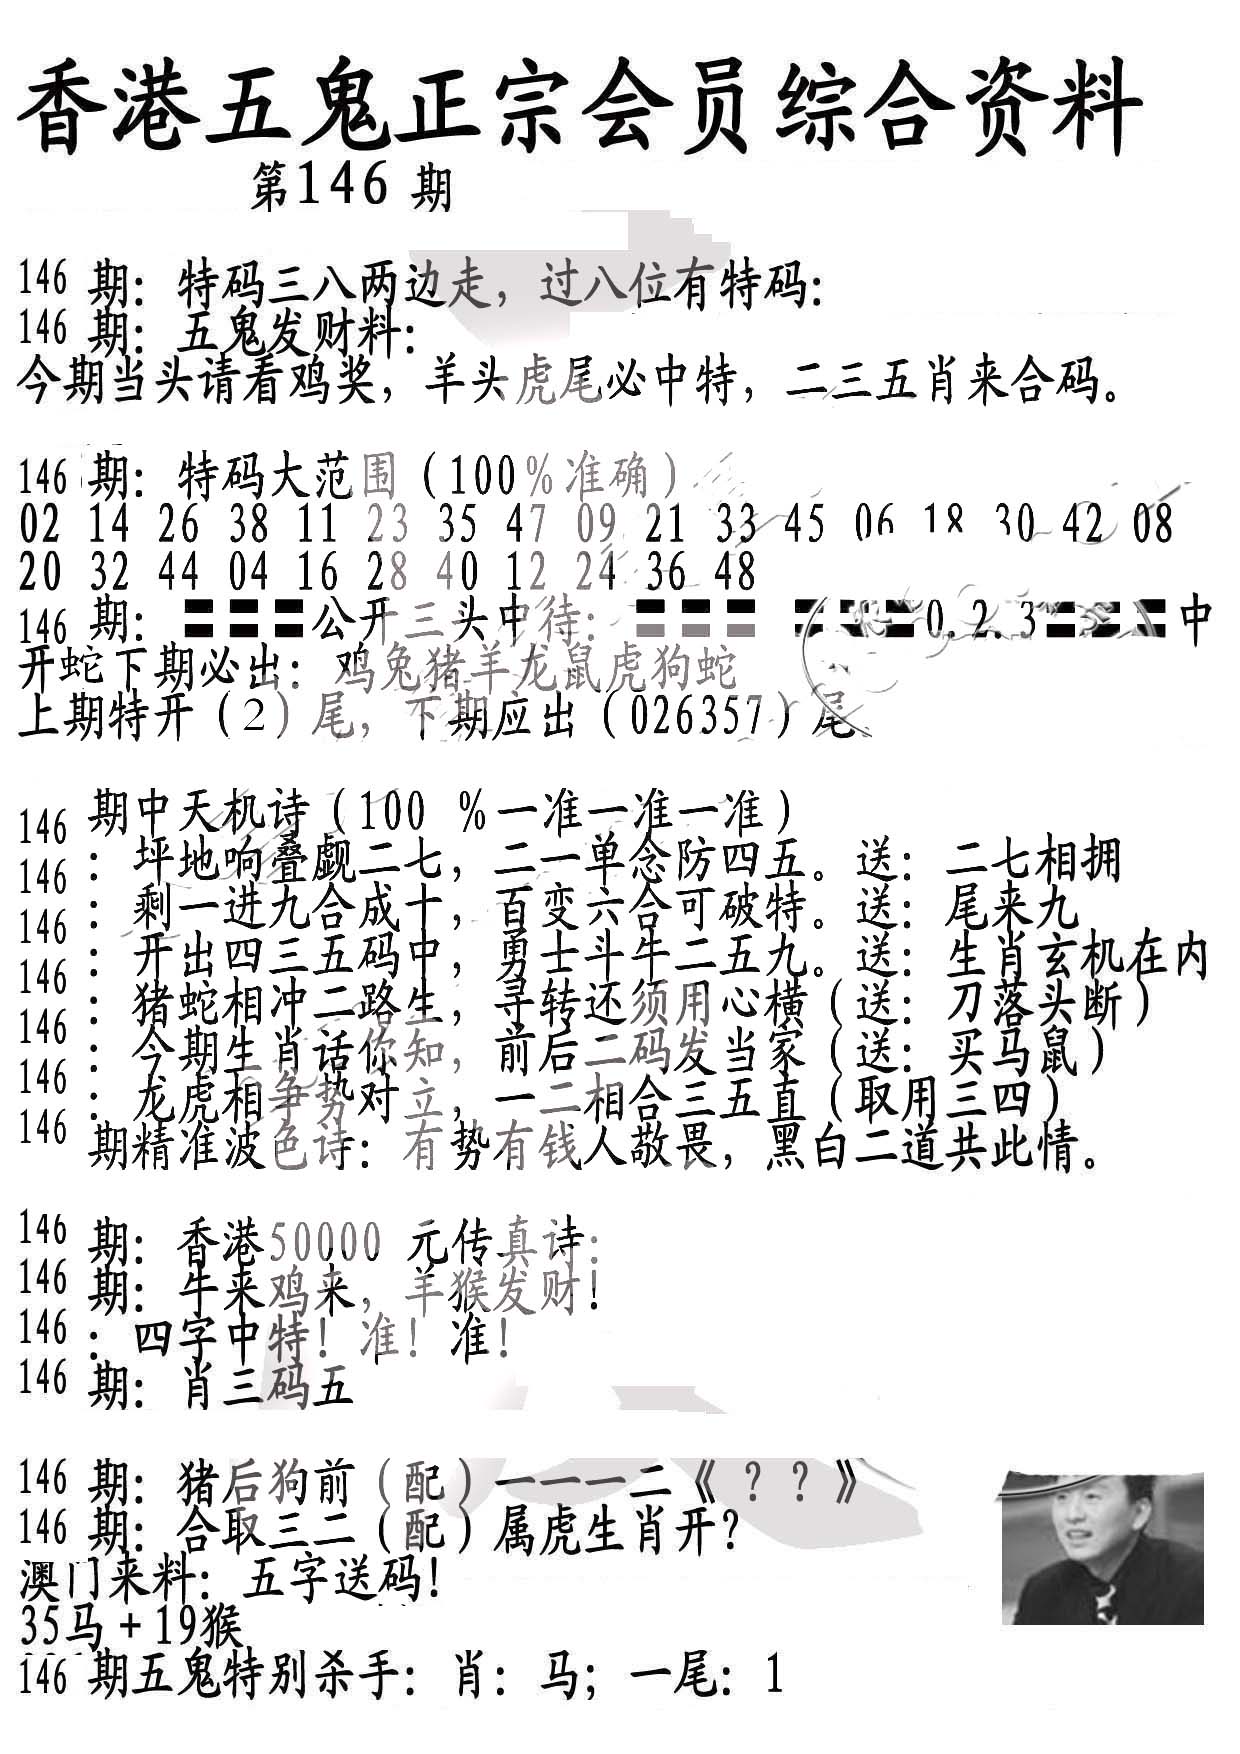 香港五鬼正宗会员综合资料
第146 期
146 期：特码三八两边走，过八位有特码：
146 期：五鬼发财料：
今期当头请看鸡奖，羊头虎尾必中特，二三五肖来合码。
146 期：特码大范围（100％准确）
02 14 26 38 11 23 35 47 09 21 33 45 06 18 30 42 08
20 32 44 04 16 28 40 12 24 36 48
146 期：〓〓〓公开三头中待：〓〓〓 〓〓〓0.2.3〓〓〓中
开蛇下期必出：鸡兔猪羊龙鼠虎狗蛇
上期特开（2）尾，下期应出（026357）尾
146 期中天机诗（100 ％一准一准一准）
146 ：坪地响叠觑二七，二一单念防四五。送：二七相拥
146 ：剩一进九合成十，百变六合可破特。送：尾来九
146 ：开出四三五码中，勇士斗牛二五九。送：生肖玄机在内
146 ：猪蛇相冲二路生，寻转还须用心横（送：刀落头断）
146 ：今期生肖话你知，前后二码发当家（送：买马鼠）
146 ：龙虎相争势对立，一二相合三五直（取用三四）
146 期精准波色诗：有势有钱人敬畏，黑白二道共此情。
146 期：香港50000 元传真诗：
146 期：牛来鸡来，羊猴发财！
146 ：四字中特！准！准！
146 期：肖三码五
146 期：猪后狗前（配）一一一二《？？》
146 期：合取三二（配）属虎生肖开？
澳门来料：五字送码！
35马＋19猴
146 期五鬼特别杀手：肖：马；一尾：1